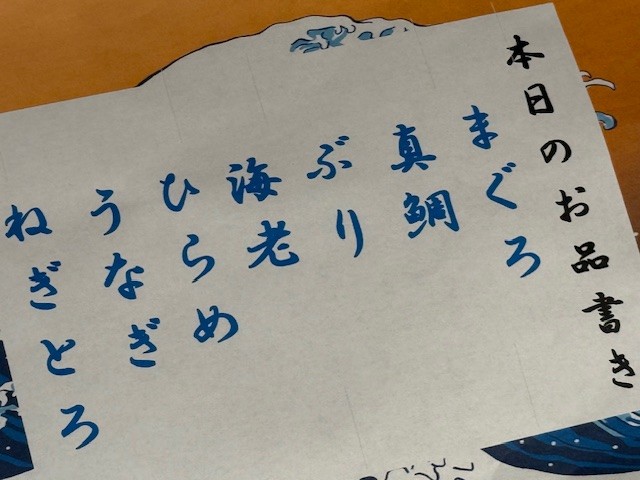 本日のお品書き
まぐろ
真鯛
ぶり
海老
ひらめ
うなぎ
ねぎとろ